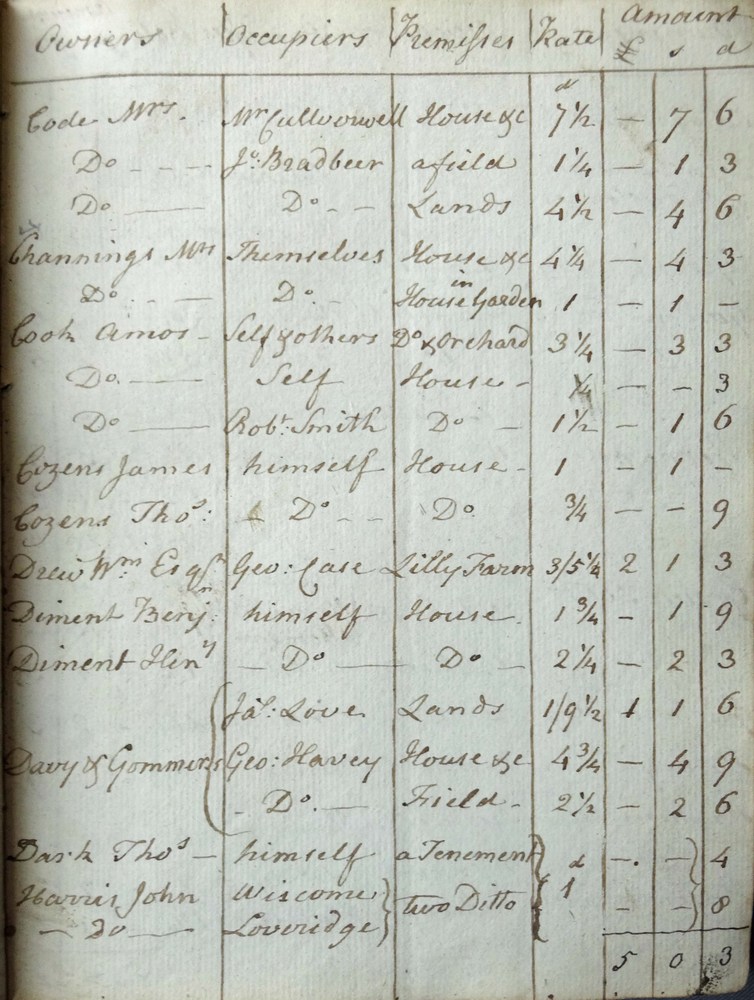 Owners Occupiers Premisses Rate Amount
£ s d
d
Code Mrs. Mr Culloowell House &c 7 1/2 — 7 6
Do - - - Jo: Bradbeer a field 1 1/4 — 1 3
Do — Do - - Lands 4 1/2 — 4 6
Channings Mrs Themselves House &c 4 1/4 — 4 3
Do - - Do - House in Garden 1 — 1 —
Cook Amos - Self & others Do & Orchard 3 1/4 — 3 3
Do. — Self House - 1/4 — - 3
Do — Robt: Smith Do - 1 1/2 — 1 6
Cozens James himself House - 1 - 1 -
Cozens Thos: - Do - - Do. 3/4 — - 9
Drew Wm Esqr Geo: Case Lilly Farm 3/5 1/4 2 1 3
Diment Benjn himself House. 1 3/4 - 1 9
Diment Heny - Do — Do - 2 1/4 - 2 3
Jas: Love Lands 1/9 1/2 1 1 6
Davy & Gommers Geo: Havey House &c 4 3/4 - 4 9
- Do. — Field - 2 1/2 - 2 6
Dark Thos - himself a Tenement d - - 4
Harris John Wiscome two Ditto 1 - - 8
- Do — Loveridge
5 0 3